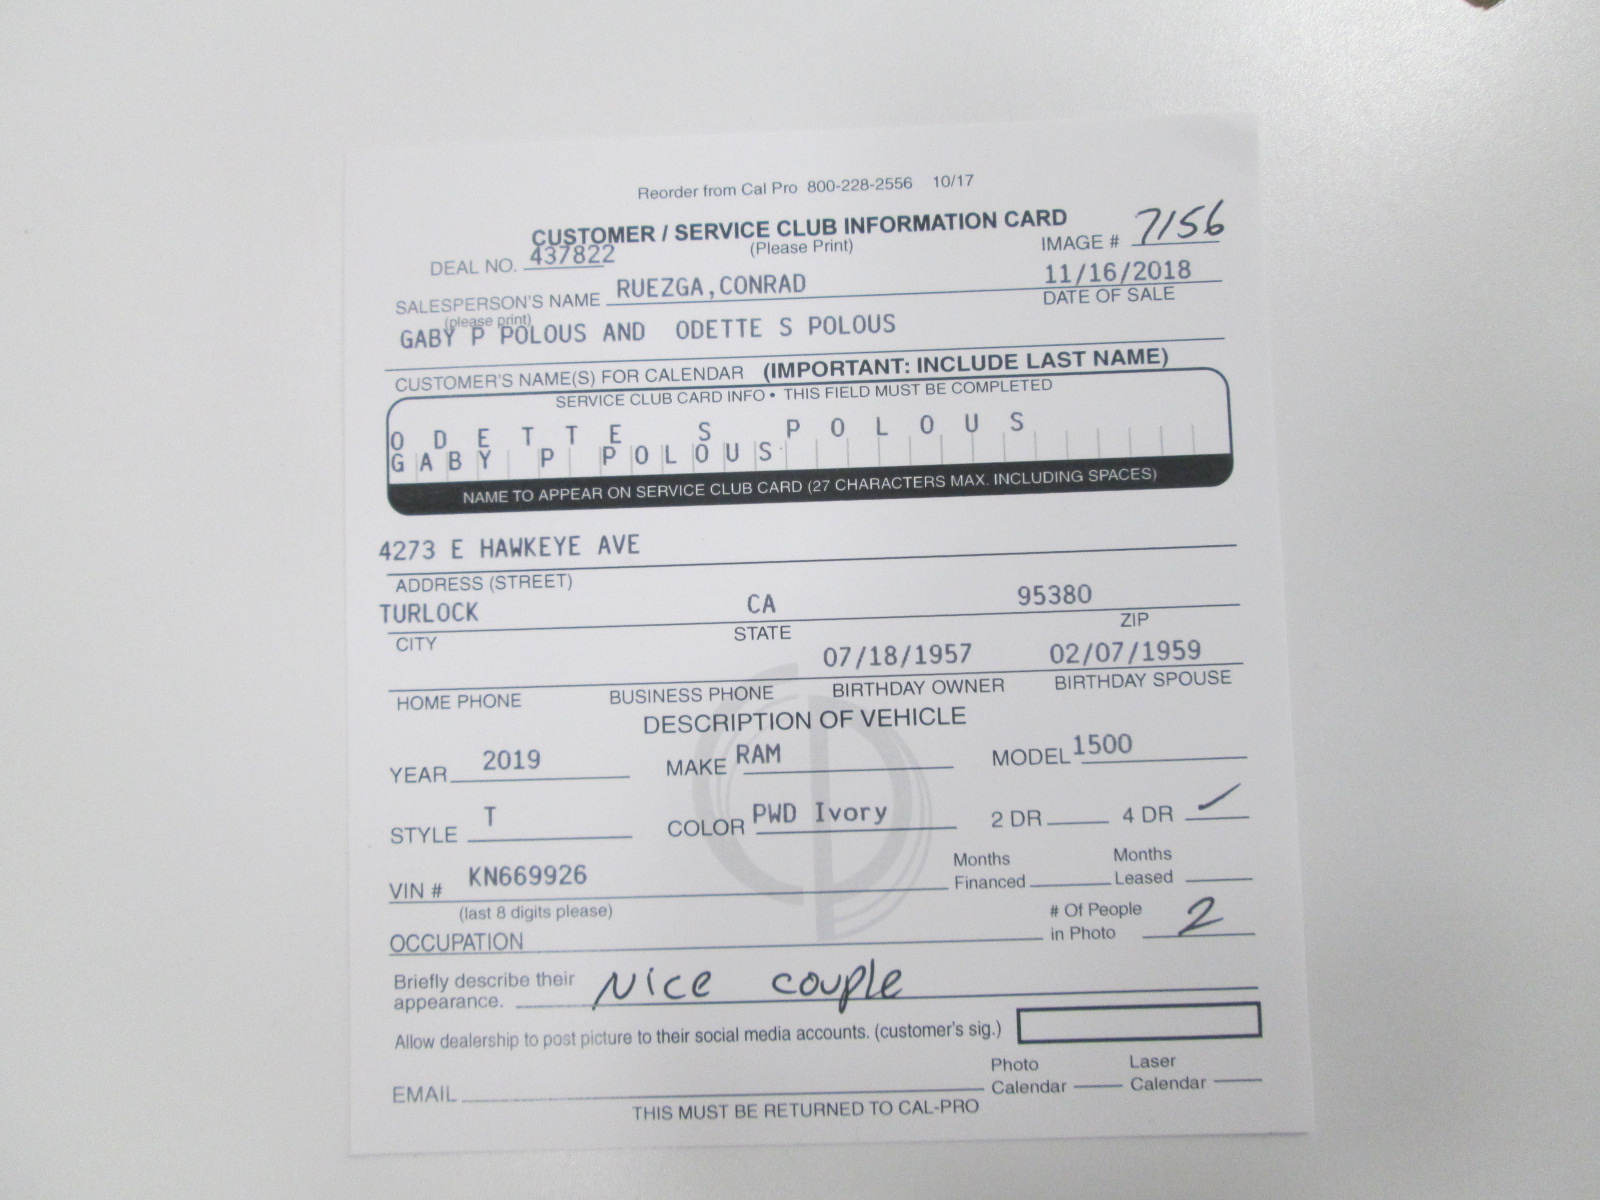 Reorder from Cal Pro 800-228-2556 10/17
CUSTOMER / SERVICE CLUB INFORMATION CARD
(Please Print)
DEAL NO. 437822
IMAGE # 7156
SALESPERSON'S NAME RUEZGA,CONRAD
(please print)
11/16/2018
DATE OF SALE
GABY P POLOUS AND ODETTE S POLOUS
CUSTOMER'S NAME(S) FOR CALENDAR (IMPORTANT: INCLUDE LAST NAME)
SERVICE CLUB CARD INFO • THIS FIELD MUST BE COMPLETED
O D E T T E S P O L O U S
G A B Y P P O L O U S
NAME TO APPEAR ON SERVICE CLUB CARD (27 CHARACTERS MAX. INCLUDING SPACES)
4273 E HAWKEYE AVE
ADDRESS (STREET)
TURLOCK CA 95380
CITY STATE ZIP
07/18/1957 02/07/1959
HOME PHONE BUSINESS PHONE BIRTHDAY OWNER BIRTHDAY SPOUSE
DESCRIPTION OF VEHICLE
YEAR 2019 MAKE RAM MODEL 1500
STYLE T COLOR PWD Ivory 2 DR 4 DR ✓
VIN # KN669926
(last 8 digits please)
Months Financed Months Leased
OCCUPATION
# Of People in Photo 2
Briefly describe their
appearance. Nice couple
Allow dealership to post picture to their social media accounts. (customer's sig.)
EMAIL
Photo Calendar Laser Calendar
THIS MUST BE RETURNED TO CAL-PRO